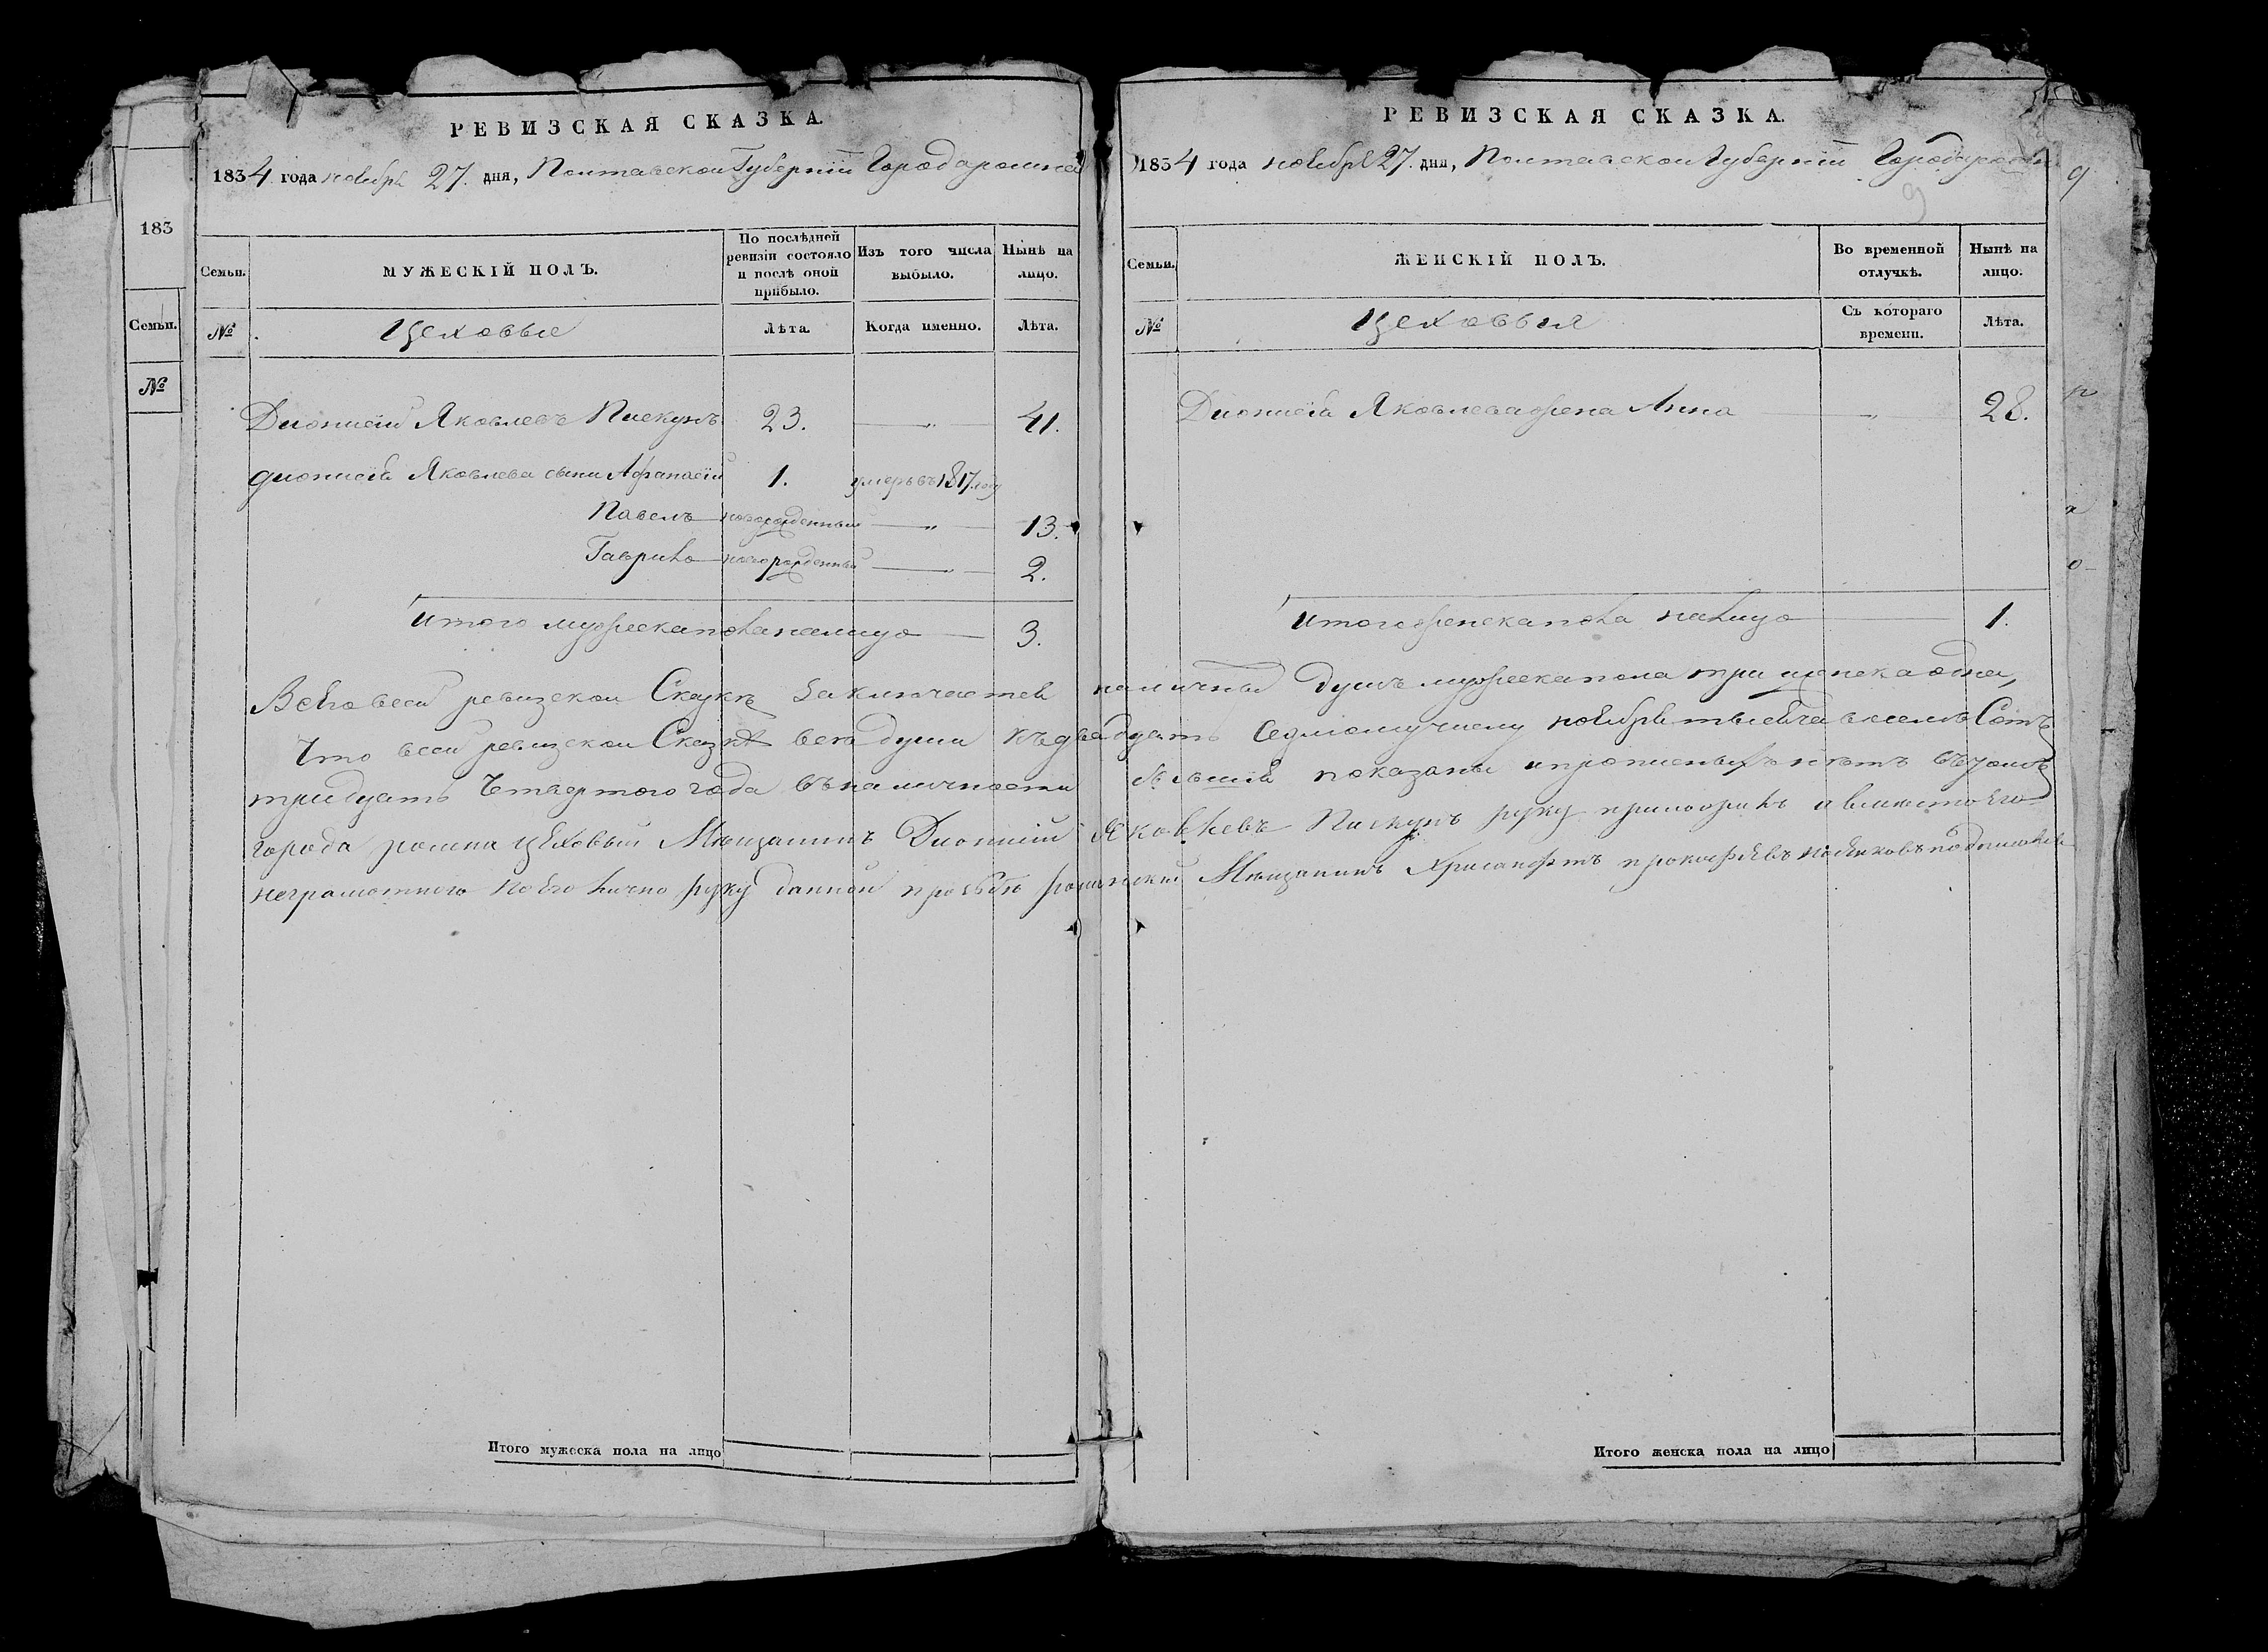 РЕВИЗСКАЯ СКАЗКА.
1834 года ноября 27. дня, Полтавской Губерніи Города ромна
183
Семьи.
№
Семьи.
МУЖЕСКІЙ ПОЛЪ.
По послѣдней ревизіи состояло и послѣ оной прибыло.
Изъ того числа выбыло.
Нынѣ на лицо.
№
Цеховые
Лѣта.
Когда именно.
Лѣта.
Дионисій Яковлевъ Пискунъ 23. — „ — 41.
дионисія Яковлева сыни Афанасій 1. умеръ въ 1817 году
Павелъ новорожденный — „ — 13.
Гаврило новорожденный — „ — 2.
итого мужеска пола налицо — 3.
РЕВИЗСКАЯ СКАЗКА.
1834 года ноября 27. дня, Полтавской Губерніи Города ромна
9
9
Семьи.
ЖЕНСКІЙ ПОЛЪ.
Во временной отлучкѣ.
Нынѣ на лицо.
№
Цеховыя
Съ котораго времени.
Лѣта.
Дионисія Яковлева жена Анна — „ — 28.
итого женска пола налицо — 1.
Всего всей ревизской Сказкѣ заключается наличныхъ душъ мужеска пола три и женска одна,
Что всей ревизской Сказкѣ все души къ двадцать Седмому числу ноября тысяча восемь Сотъ
тридцать Четвертого года въ наличности бывшія показаны и прописныхъ нѣтъ въ томъ
города ромна цеховый Мѣщанинъ Дионисій Яковлевъ Пискунъ руку приложилъ а вместо его
неграмотного по его лично руку данной прозбѣ роменский Мѣщанинъ Хрисанфъ прокофьевъ подписался
Итого мужеска пола на лицо
Итого женска пола на лицо